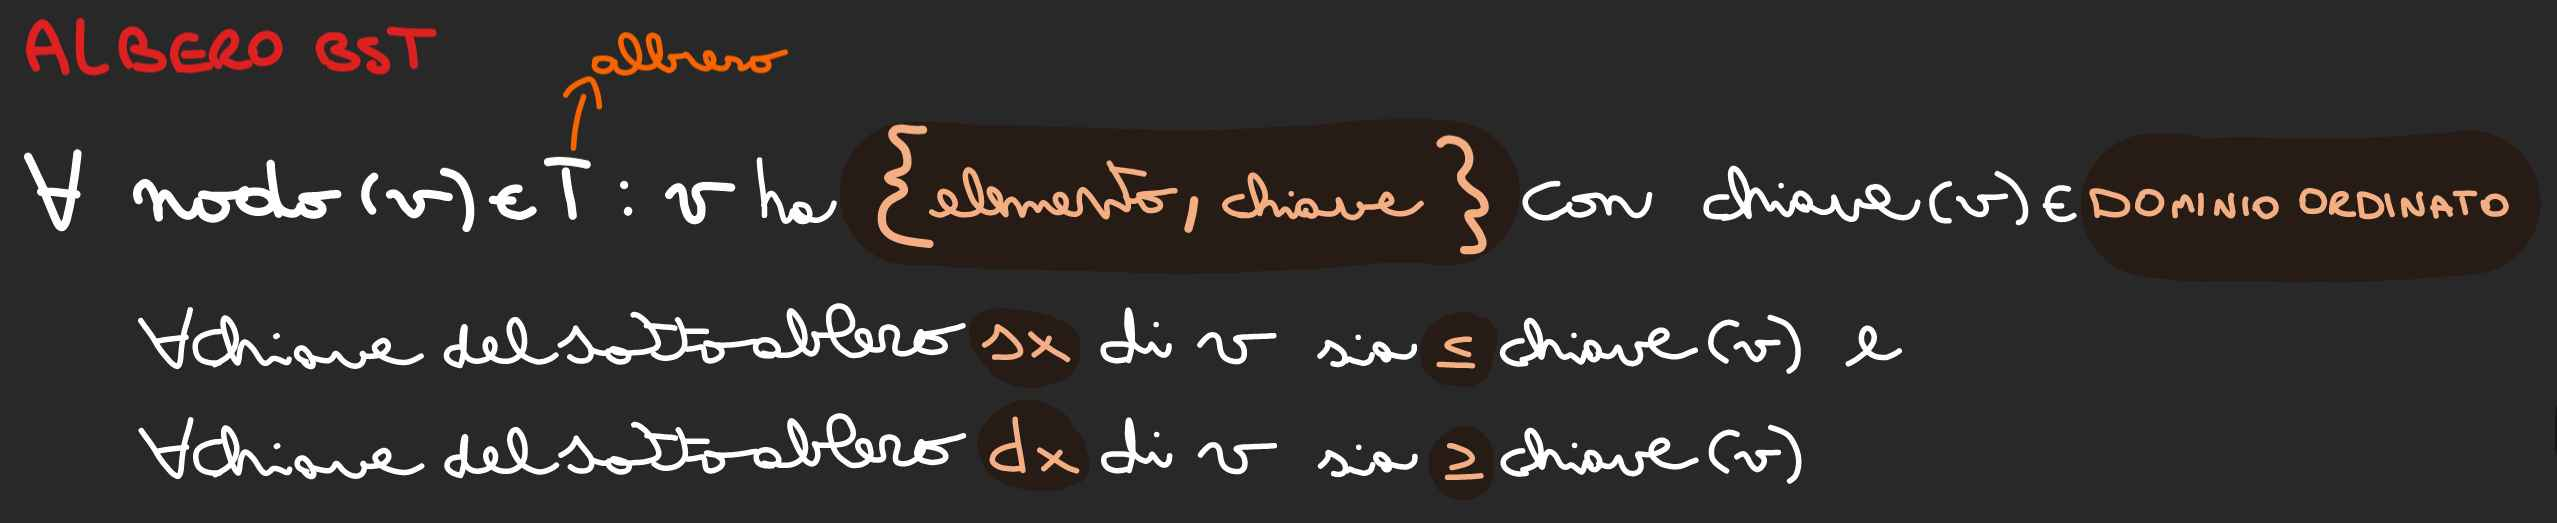 ALBERO BST
albero
∀ nodo (v) ∈ T : v ha {elemento, chiave} con chiave (v) ∈ DOMINIO ORDINATO
∀ chiave del sottoalbero sx di v sia ≤ chiave (v) e
∀ chiave del sottoalbero dx di v sia ≥ chiave (v)